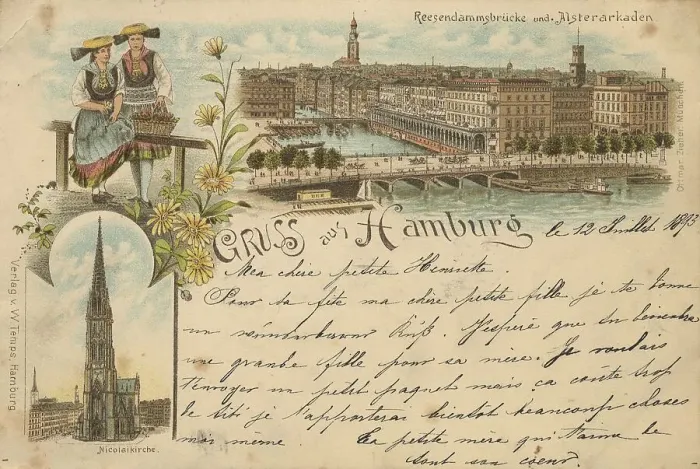 Reesendammsbrücke und. Alsterarkaden
Ottmar Zieher, München
Gruss aus Hamburg
le 12 Juillet 1895
Ma chère petite Henriette.
Pour ta fête ma chère petite fille je te donne
un wunderbaren Kuß. J'espère que tu deviendras
une grande fille pour sa mère. Je voulais
t'envoyer un petit paquet mais ça coûte trop
je t'apporterai bientôt beaucoup choses
moi même Ta petite mère qui t'aime de
tout son coeur.
Nicolaikirche.
Verlag v. W. Temps, Hamburg